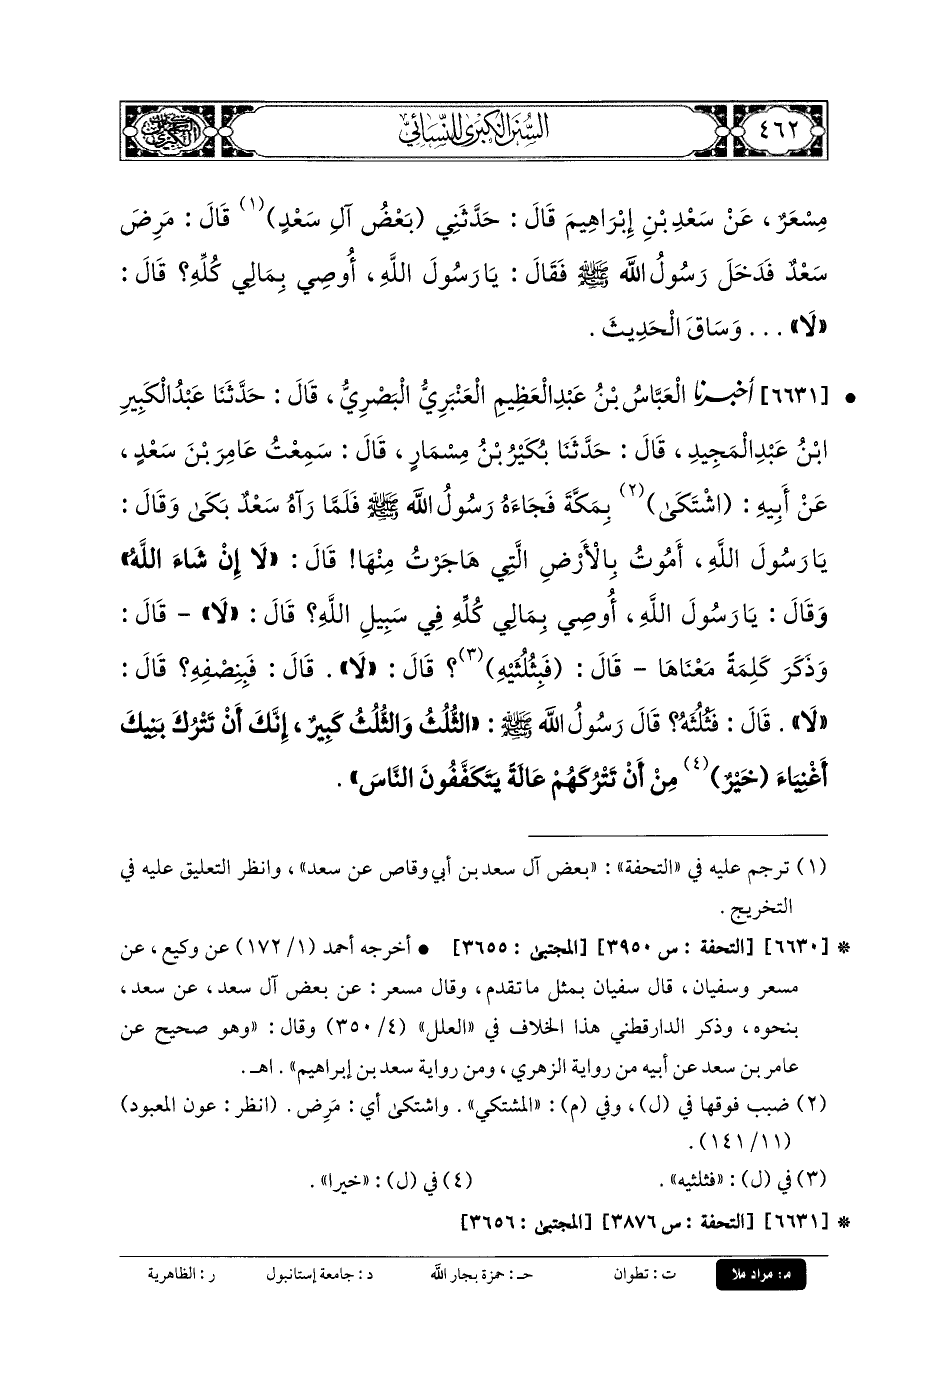 ٤٦٢
السنن الكبرى للنسائي
مِسْعَرٌ ، عَنْ سَعْدِ بْنِ إِبْرَاهِيمَ قَالَ : حَدَّثَنِي (بَعْضُ آلِ سَعْدٍ)(١) قَالَ : مَرِضَ
سَعْدٌ فَدَخَلَ رَسُولُ اللَّه ﷺ فَقَالَ : يَا رَسُولَ اللَّهِ ، أُوصِي بِمَالِي كُلِّهِ؟ قَالَ :
«لَا» ... وَسَاقَ الْحَدِيثَ .
• [٦٦٣١] أَخْبَرَنَا الْعَبَّاسُ بْنُ عَبْدِالْعَظِيمِ الْعَنْبَرِيُّ الْبَصْرِيُّ ، قَالَ : حَدَّثَنَا عَبْدُالْكَبِيرِ
ابْنُ عَبْدِالْمَجِيدِ ، قَالَ : حَدَّثَنَا بُكَيْرُ بْنُ مِسْمَارٍ ، قَالَ : سَمِعْتُ عَامِرَ بْنَ سَعْدٍ ،
عَنْ أَبِيهِ : (اشْتَكَىٰ)(٢) بِمَكَّةَ فَجَاءَهُ رَسُولُ اللَّه ﷺ فَلَمَّا رَآهُ سَعْدٌ بَكَىٰ وَقَالَ :
يَا رَسُولَ اللَّهِ ، أَمُوتُ بِالْأَرْضِ الَّتِي هَاجَرْتُ مِنْهَا! قَالَ : «لَا إِنْ شَاءَ اللَّهُ»
وَقَالَ : يَا رَسُولَ اللَّهِ ، أُوصِي بِمَالِي كُلِّهِ فِي سَبِيلِ اللَّهِ؟ قَالَ : «لَا» - قَالَ :
وَذَكَرَ كَلِمَةً مَعْنَاهَا - قَالَ : (فَبِثُلُثَيْهِ)(٣)؟ قَالَ : «لَا» . قَالَ : فَبِنِصْفِهِ؟ قَالَ :
«لَا» . قَالَ : فَثُلُثَهُ؟ قَالَ رَسُولُ اللَّه ﷺ : «الثُّلُثُ وَالثُّلُثُ كَبِيرٌ ، إِنَّكَ أَنْ تَتْرُكَ بَنِيكَ
أَغْنِيَاءَ (خَيْرٌ)(٤) مِنْ أَنْ تَتْرُكَهُمْ عَالَةً يَتَكَفَّفُونَ النَّاسَ» .
(١) ترجم عليه في «التحفة» : «بعض آل سعد بن أبي وقاص عن سعد» ، وانظر التعليق عليه في
التخريج .
* [٦٦٣٠] [التحفة : س ٣٩٥٠] [المجتبىٰ : ٣٦٥٥] • أخرجه أحمد (١/ ١٧٢) عن وكيع ، عن
مسعر وسفيان ، قال سفيان بمثل ما تقدم ، وقال مسعر : عن بعض آل سعد ، عن سعد ،
بنحوه ، وذكر الدارقطني هذا الخلاف في «العلل» (٤/ ٣٥٠) وقال : «وهو صحيح عن
عامر بن سعد عن أبيه من رواية الزهري ، ومن رواية سعد بن إبراهيم» . اهـ .
(٢) ضبب فوقها في (ل) ، وفي (م) : «المشتكي» . واشتكىٰ أي : مَرِض . (انظر : عون المعبود)
(١١/ ١٤١) .
(٣) في (ل) : «فثلثيه» . (٤) في (ل) : «خيرا» .
* [٦٦٣١] [التحفة : س ٣٨٧٦] [المجتبىٰ : ٣٦٥٦]
م: مراد ملا ت : تطوان حـ : حمزة بجار اللَّه د : جامعة إستانبول ر : الظاهرية